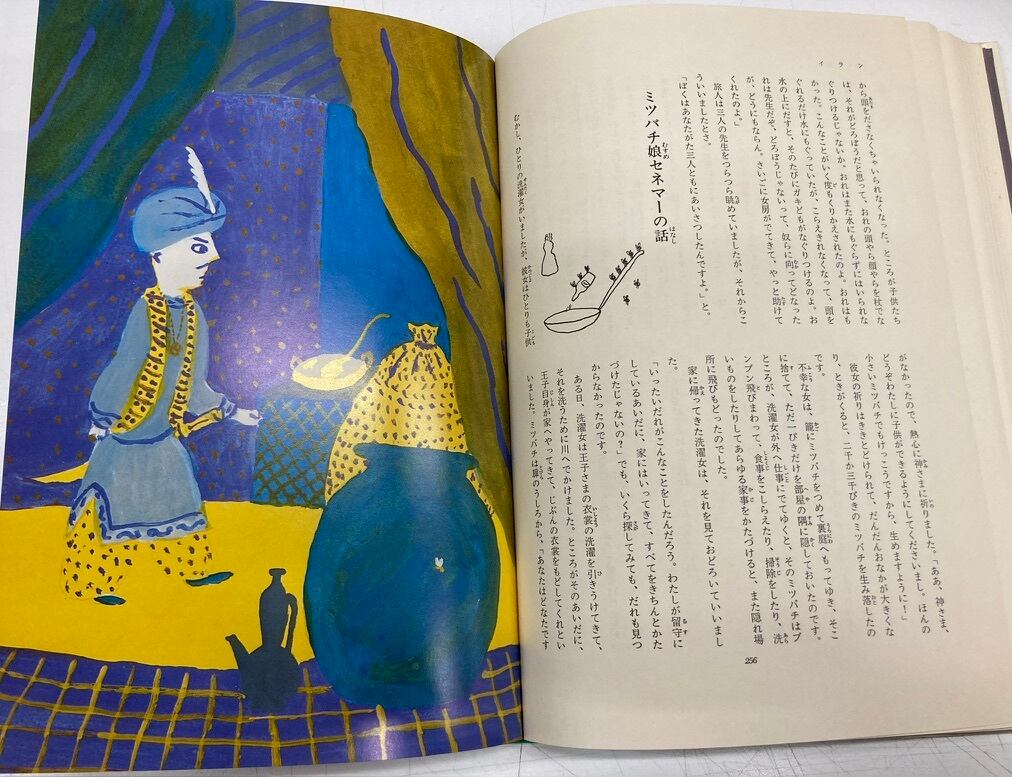 イラン
から頭をださなくちゃいられなくなった。ところが子供たち
は、それがどろぼうだと思って、おれの頭やら顔やらを杖でな
ぐりつけるじゃないか。おれはまた水にもぐらずにはいられな
かった。こんなことがいく度もくりかえされたのよ。おれはも
ぐれるだけ水にもぐっていたが、こらえきれなくなって、頭を
水の上にだすと、そのたびにガキどもがなぐりつけるのよ。お
れは先生だぞ、どろぼうじゃないって、奴らに向ってどなった
が、どうにもならん。さいごに女房がでてきて、やっと助けて
くれたのよ。」
旅人は三人の先生をつらつら眺めていましたが、それからこ
ういいましたとさ。
「ぼくはあなたがた三人ともにあいさつしたんですよ。」と。
ミツバチ娘セネマーの話
むかし、ひとりの洗濯女がいましたが、彼女はひとりも子供
がなかったので、熱心に神さまに祈りました。「ああ、神さま、
どうぞわたしに子供ができるようにしてくださいまし。ほんの
小さいミツバチでもけっこうですから、生めますように！」
彼女の祈りはききとどけられて、だんだんおなかが大きくな
り、ときがくると、二千か三千びきのミツバチを生み落したの
です。
不幸な女は、籠にミツバチをつめて裏庭へもってゆき、そこ
に捨てて、ただ一ぴきだけを部屋の隅に隠しておいたのです。
ところが、洗濯女が外へ仕事にでてゆくと、そのミツバチはブ
ンブン飛びまわって、食事をこしらえたり、掃除をしたり、洗
いものをしたりしてあらゆる家事をかたづけると、また隠れ場
所に飛びもどったのでした。
家に帰ってきた洗濯女は、それを見ておどろいていいまし
た。
「いったいだれがこんなことをしたんだろう。わたしが留守に
しているあいだに、家にはいってきて、すべてをきちんとかた
づけたじゃないの？」でも、いくら探してみても、だれも見つ
からなかったのです。
ある日、洗濯女は王子さまの衣裳の洗濯を引きうけてきて、
それを洗うために川へでかけました。ところがそのあいだに、
王子自身が家へやってきて、じぶんの衣裳をもどしてくれとい
いました。ミツバチは扉のうしろから、「あなたはどなたです
256